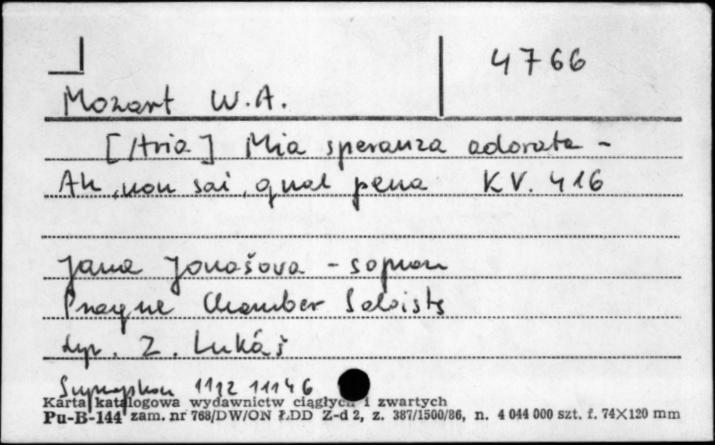 4766
Mozart W.A.
[Aria] Mia speranza adorata -
Ah, non sai, qual pena KV. 416
Jana Jonašova - sopran
Prague Chamber Soloists
dyr. Z. Lukáš
Supraphon 1112 11146
Karta katalogowa wydawnictw ciągłych i zwartych
Pu-B-144 zam. nr 768/DW/ON ŁDD Z-d 2, z. 387/1500/86, n. 4 044 000 szt. f. 74×120 mm